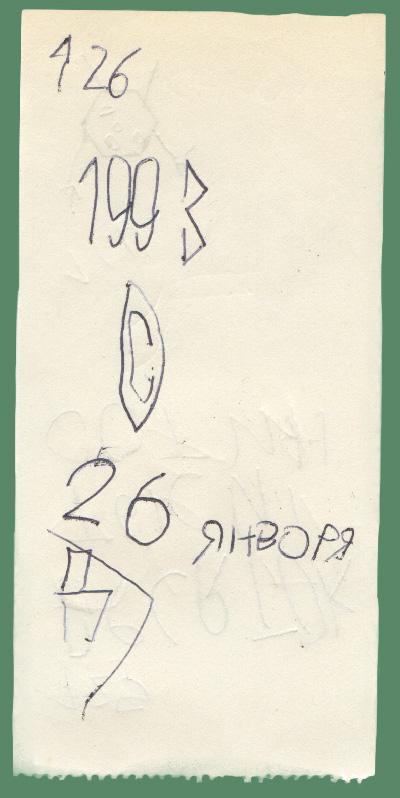 126
1993
С
26 ЯНВОРЯ
Д